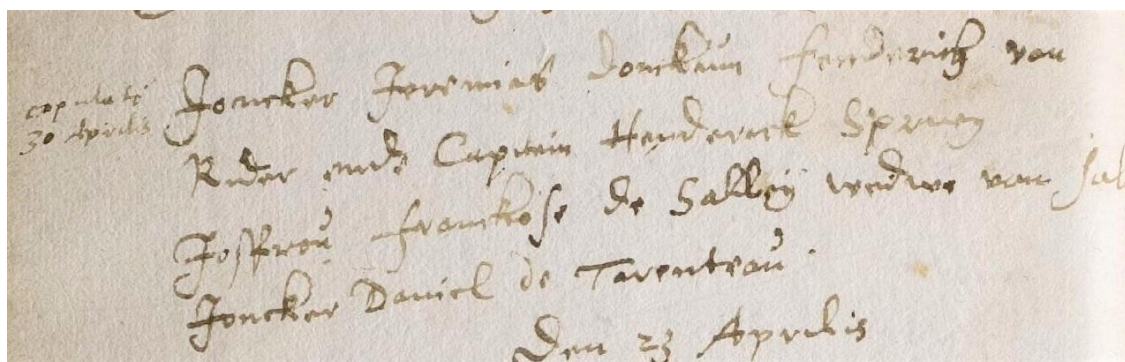 copulati
30 Aprilis
Joncker Jeremias Donckum fenderich van
Rider ende Capitein Henderick Spruey
Joffrou franckose de Salley wedwe van sal
Joncker Daniel de Tarenteau.
Den 23 Aprilis